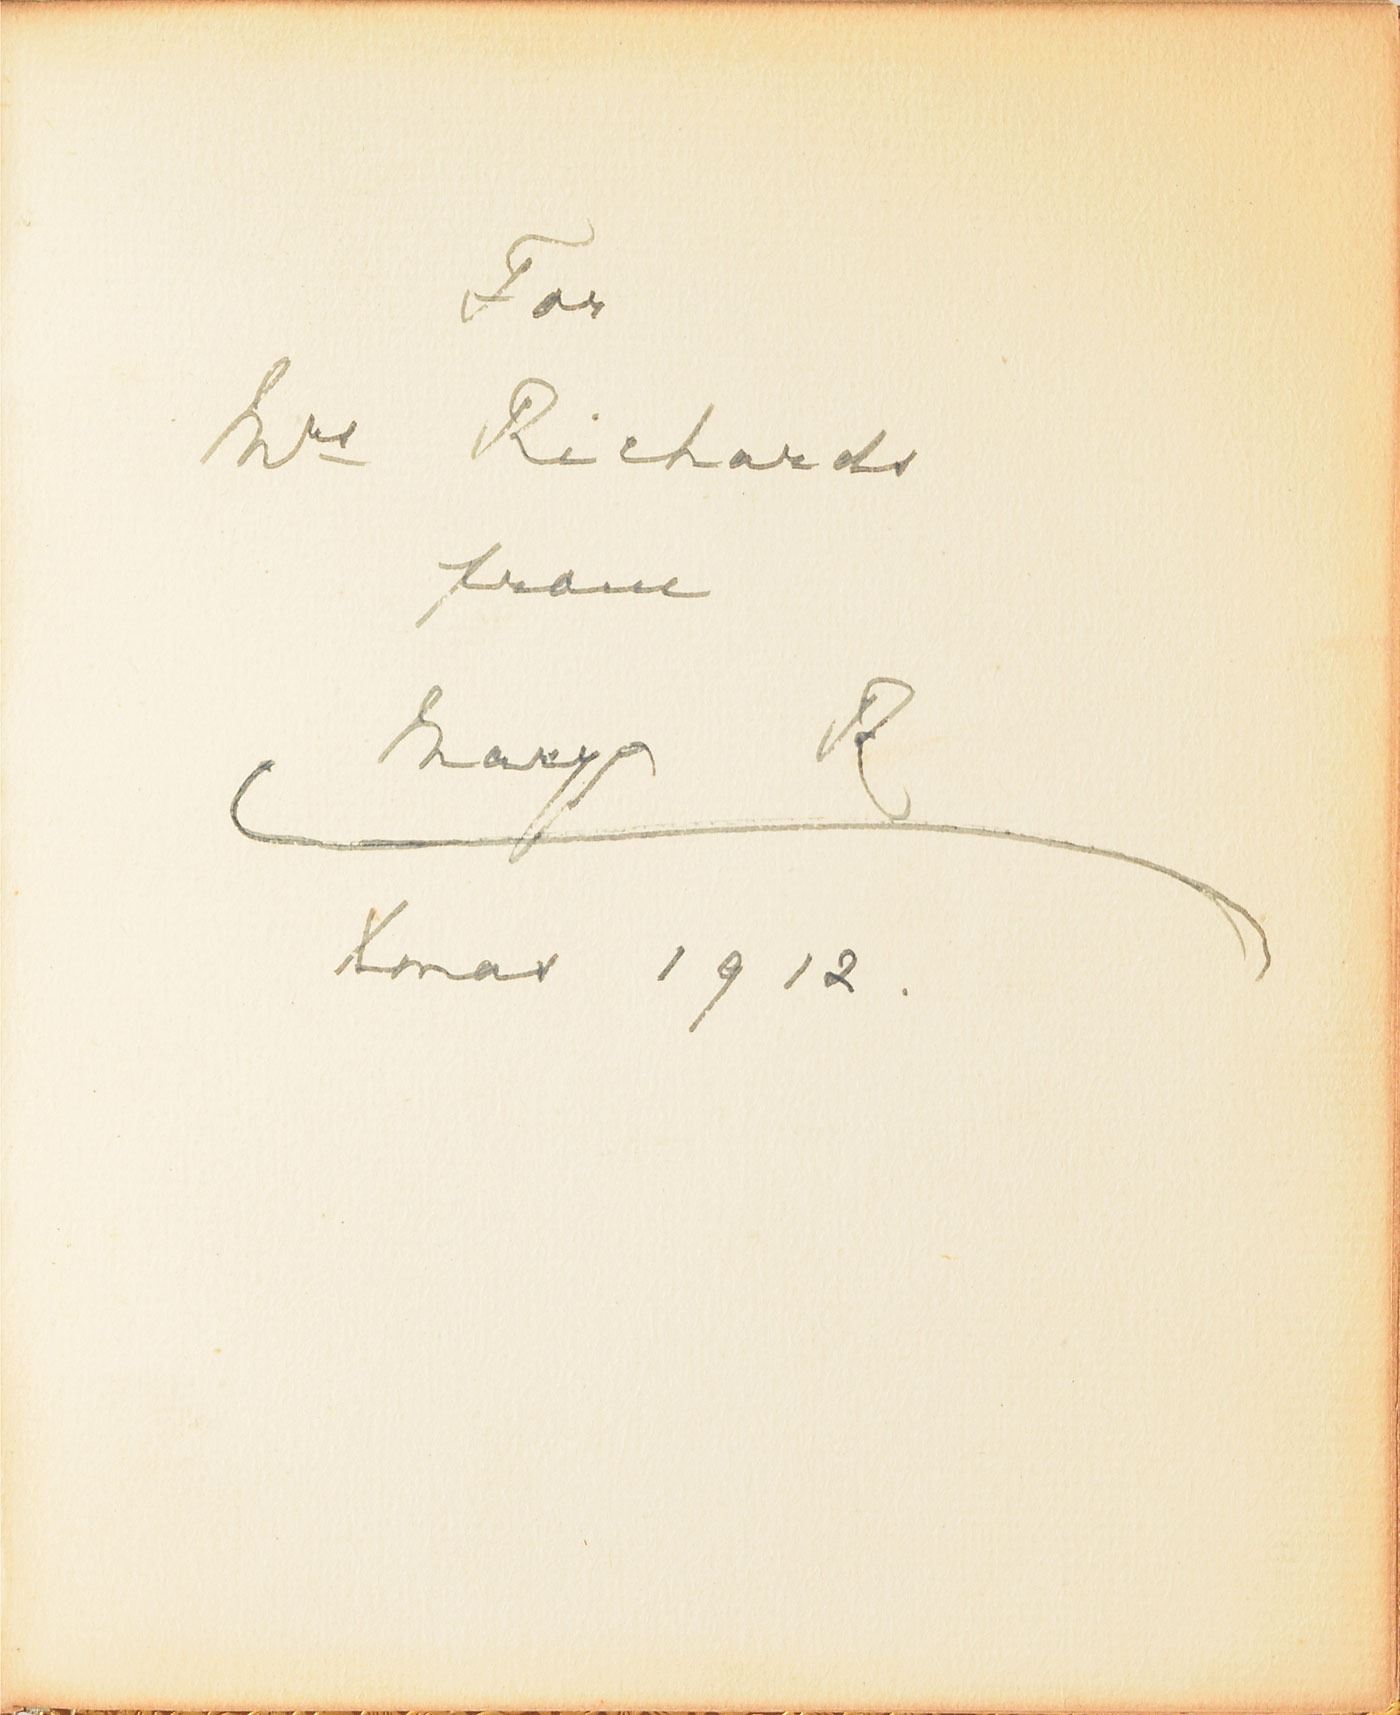 For
Mrs Richards
from
Mary R
Xmas 1912.